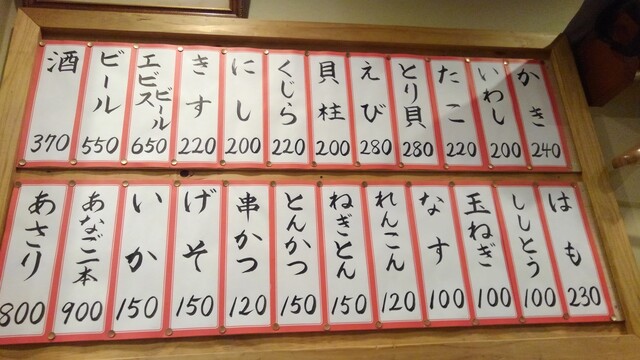 かき 240
いわし 200
たこ 220
とり貝 280
えび 280
貝柱 200
くじら 220
にし 200
きす 220
エビスビール 650
ビール 550
酒 370
はも 230
ししとう 100
玉ねぎ 100
なす 100
れんこん 120
ねぎとん 150
とんかつ 150
串かつ 120
げそ 150
いか 150
あなご一本 900
あさり 800